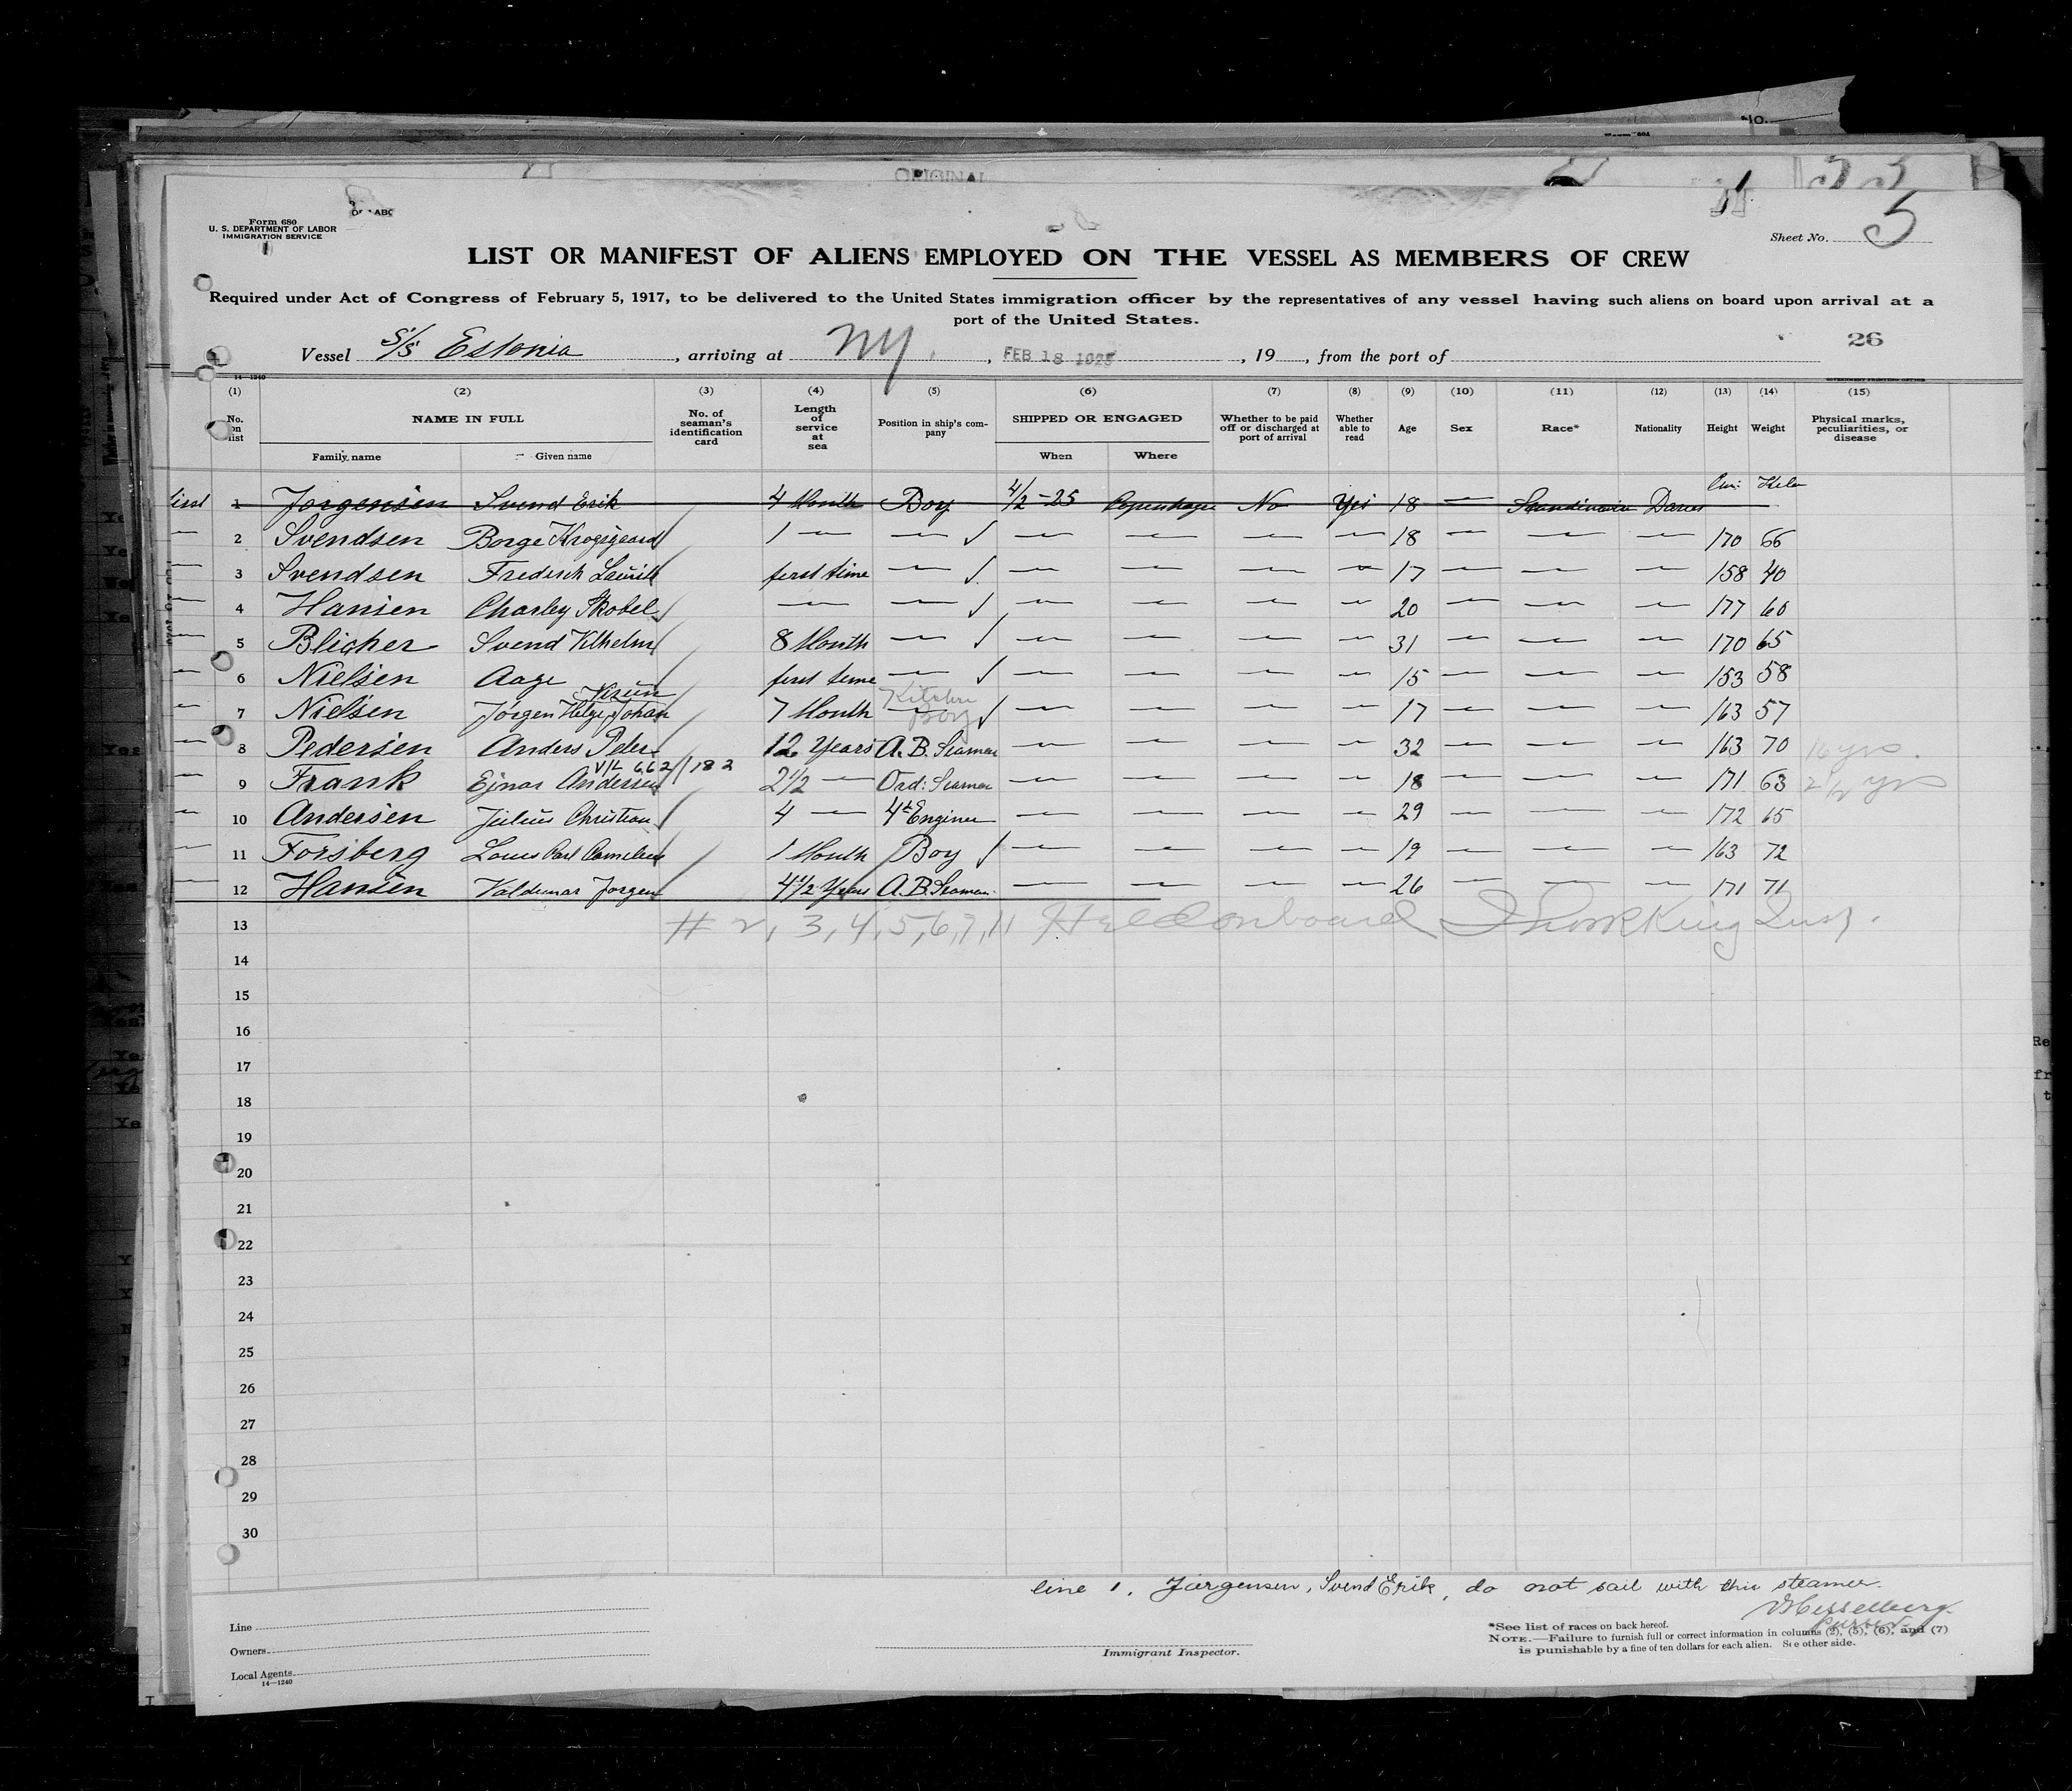 ORIGINAL
Form 680
U. S. DEPARTMENT OF LABOR
IMMIGRATION SERVICE
Sheet No. 5
LIST OR MANIFEST OF ALIENS EMPLOYED ON THE VESSEL AS MEMBERS OF CREW
Required under Act of Congress of February 5, 1917, to be delivered to the United States immigration officer by the representatives of any vessel having such aliens on board upon arrival at a
port of the United States.
26
Vessel S/S Estonia, arriving at NY, FEB 18 1925, 19 , from the port of
14—1240 GOVERNMENT PRINTING OFFICE
(1) (2) (3) (4) (5) (6) (7) (8) (9) (10) (11) (12) (13) (14) (15)
No. on list NAME IN FULL No. of seaman's identification card Length of service at sea Position in ship's company SHIPPED OR ENGAGED Whether to be paid off or discharged at port of arrival Whether able to read Age Sex Race* Nationality Height Weight Physical marks, peculiarities, or disease
Family name Given name When Where
1 Jorgensen Svend Erik 4 Month Boy 4/2-25 Copenhagen No Yes 18 — Scandinavia Danes
2 Svendsen Borge Krogsgaard 1 — — ✓ — — — — 18 — — — 170 66
3 Svendsen Fredrich Laurits first time — ✓ — — — — 17 — — — 158 40
4 Hansen Charley Skobel — — ✓ — — — — 20 — — — 177 60
5 Blicher Svend Vilhelm 8 Month — ✓ — — — — 31 — — — 170 65
6 Nielsen Aage first time — ✓ — — — — 15 — — — 153 58
7 Nielsen Jørgen Helge Johan 7 Month — Kitchen Boy ✓ — — — — 17 — — — 163 57
8 Pedersen Anders Peter 12 Years A.B. Seaman — — — — 32 — — — 163 70 16 yrs.
V/L 662/182
9 Frank Ejnar Andersen 2 1/2 — Ord: Seaman — — — — 18 — — — 171 63 2 1/2 yrs
10 Andersen Julius Christian 4 — 4th Engineer — — — — 29 — — — 172 65
11 Forsberg Louis Carl Cornelius 1 Month Boy ✓ — — — — 19 — — — 163 72
12 Hansen Valdemar Jorgen 4 1/2 Years A.B. Seaman — — — — 26 — — — 171 71
13 # 2, 3, 4, 5, 6, 7, 11 Held on board
14
15
16
17
18
19
20
21
22
23
24
25
26
27
28
29
30
line 1. Jørgensen, Svend Erik, do not sail with this steamer.
Hesselberg
Purser
Line
Owners
Local Agents
14—1240
Immigrant Inspector.
*See list of races on back hereof.
NOTE.—Failure to furnish full or correct information in columns (2), (5), (6), and (7)
is punishable by a fine of ten dollars for each alien. See other side.